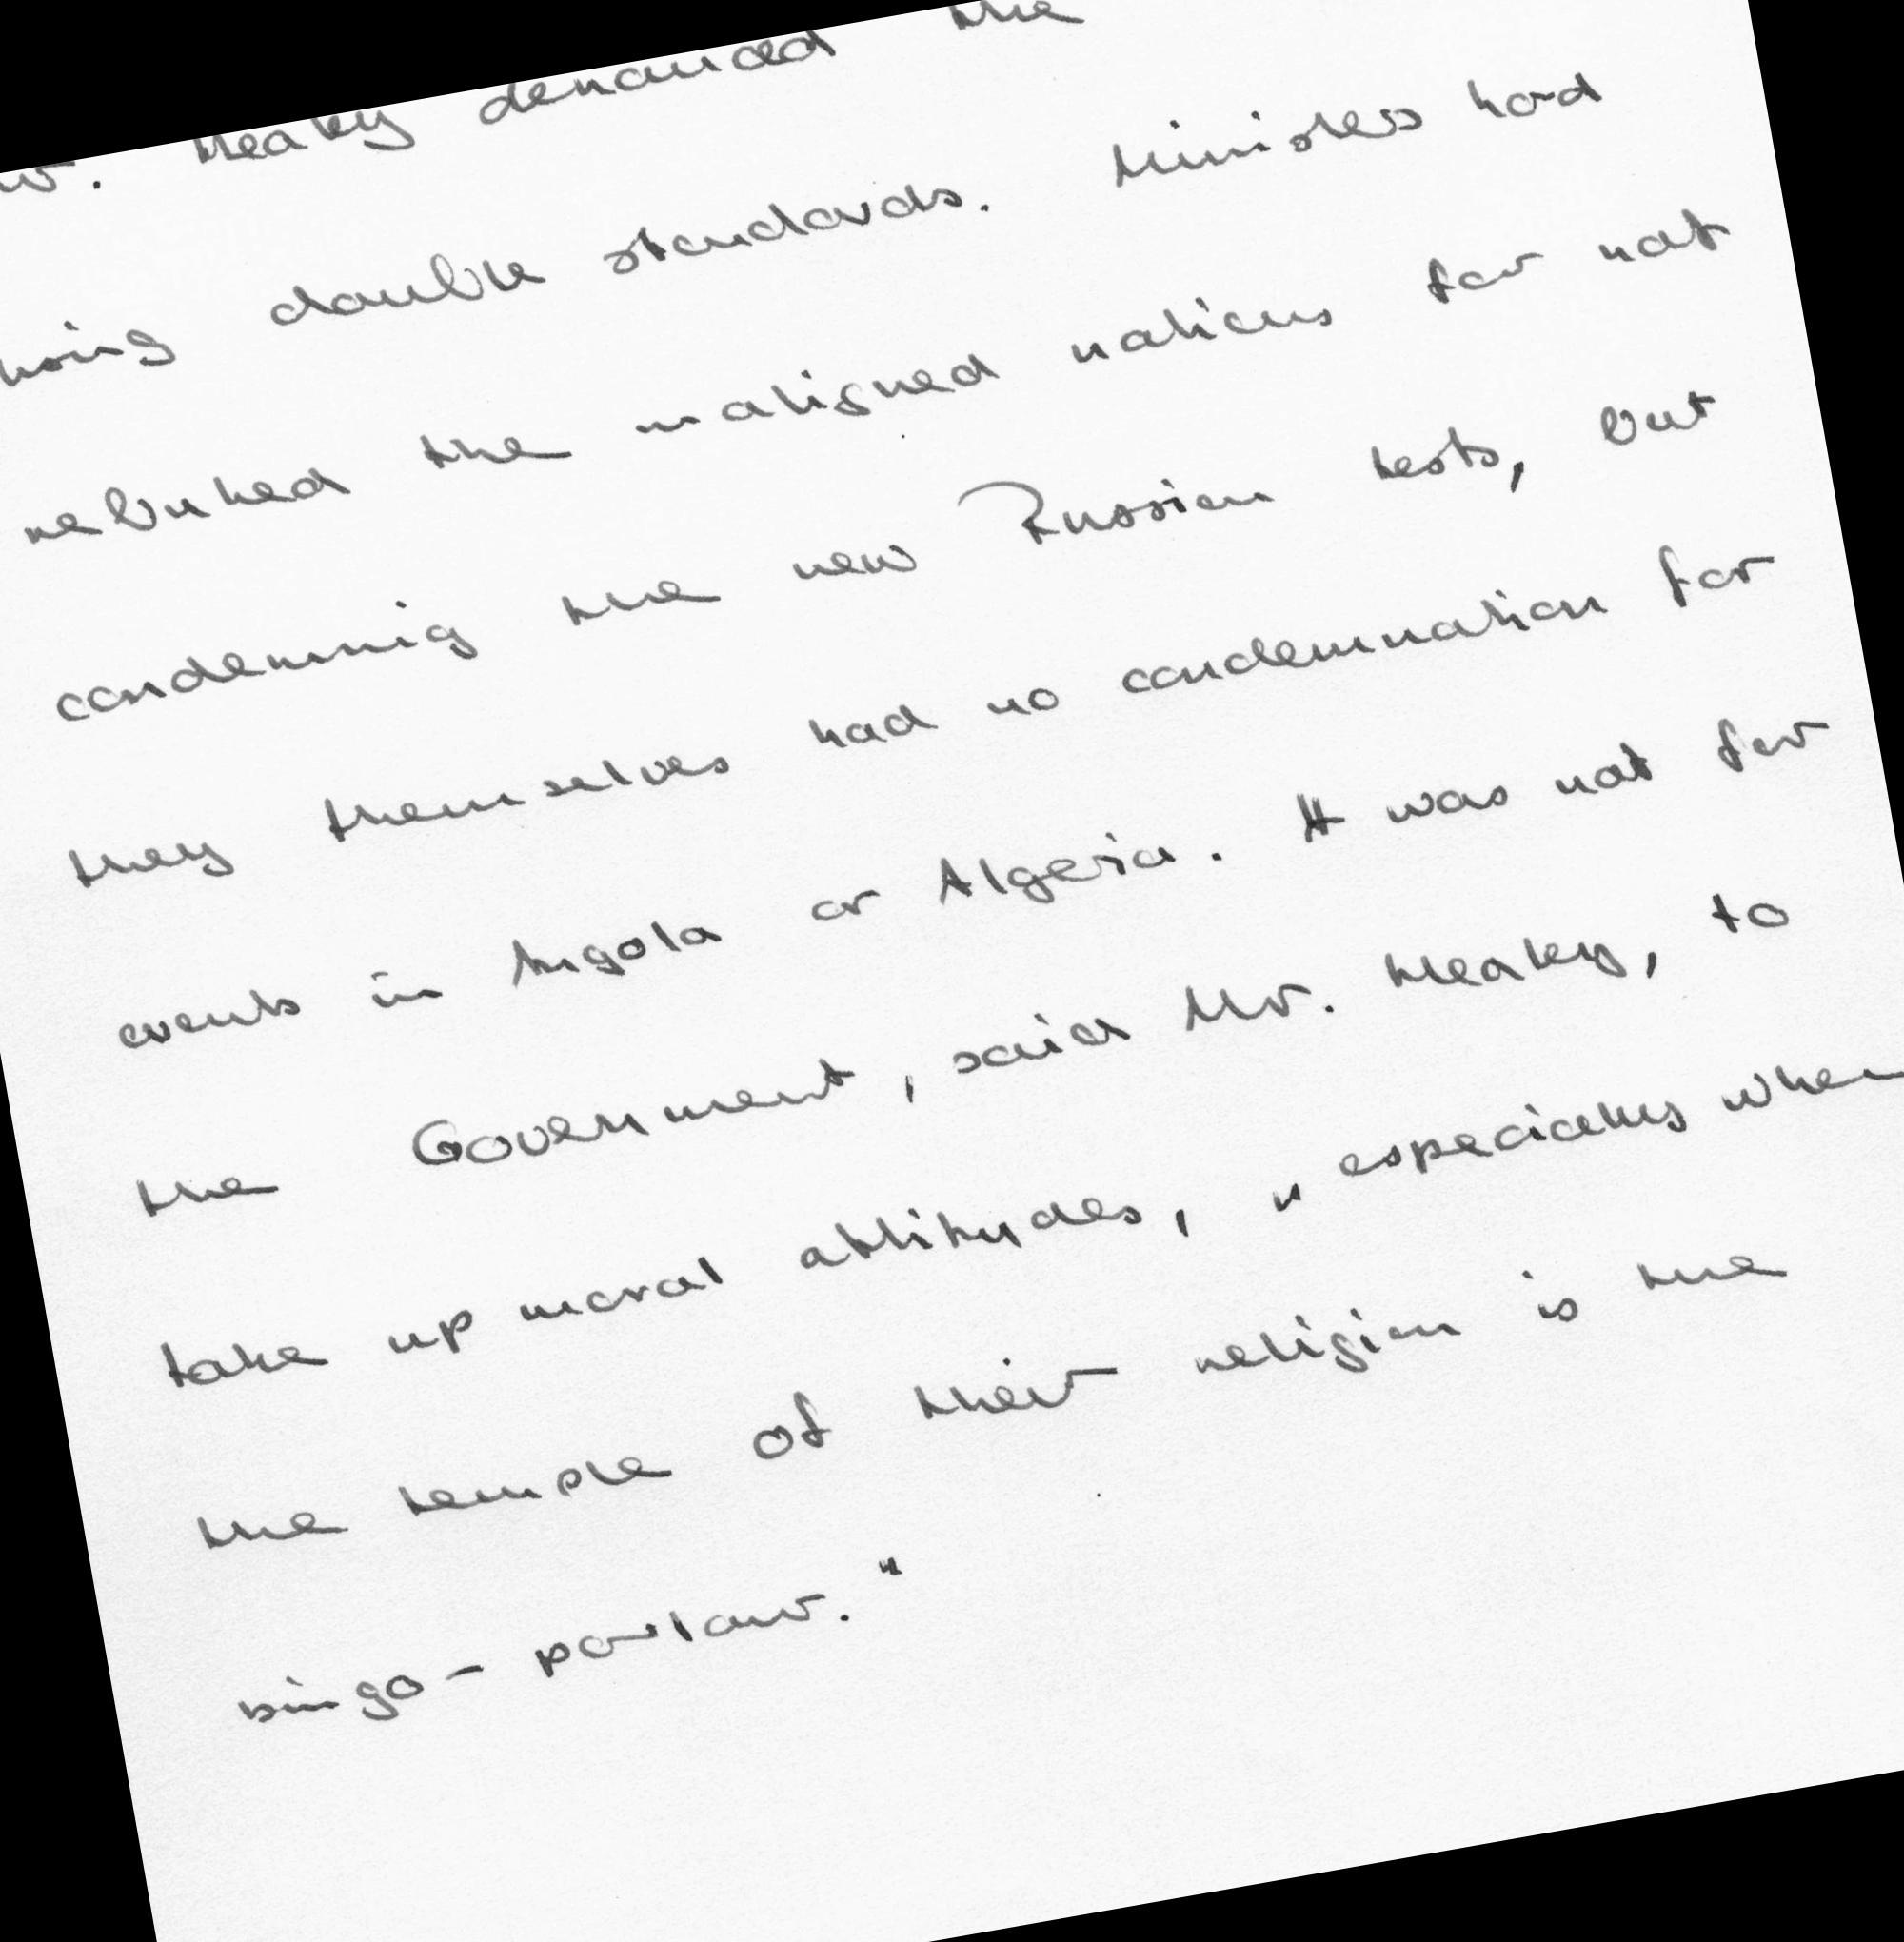 Healey demanded the
double standards. Ministers had
rebuked the maligned nations for not
condemnig the new Russian tests, but
they themselves had no condemnation for
events in Angola or Algeria. It was not for
the Government, said Mr. Healey, to
take up moral attitudes, "especially when
the temple of their religion is the
bingo-parlour."